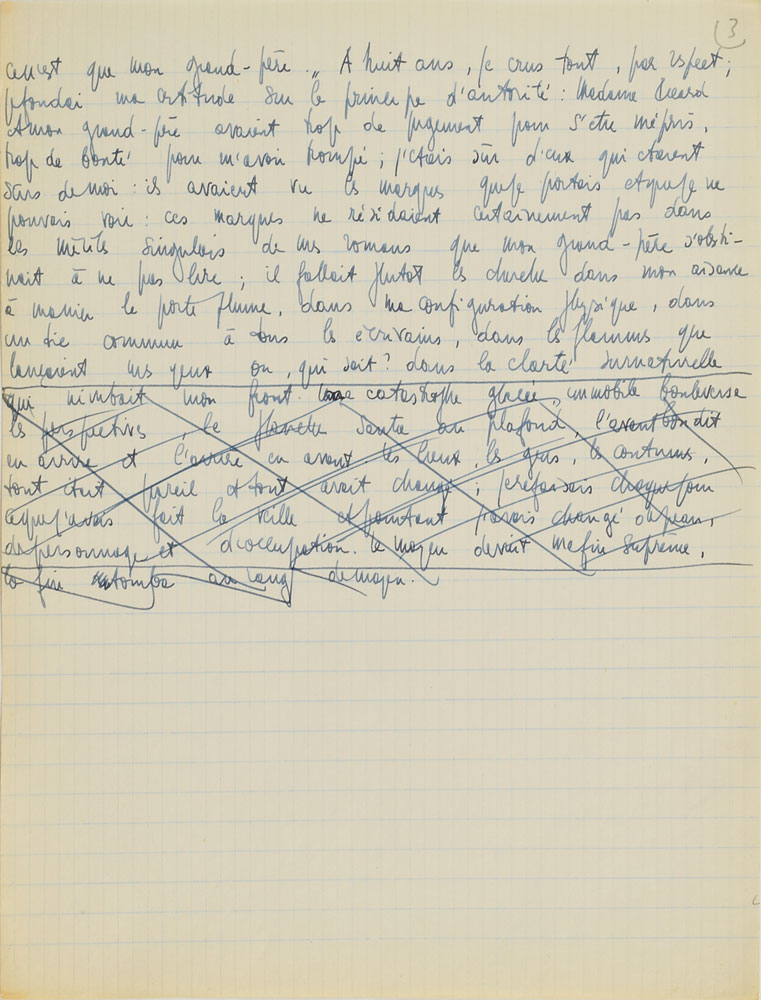 3
ce n'est que mon grand-père. „ A huit ans, je crus tout, par respect;
je fondai ma certitude sur le principe d'autorité : Madame Picard
et mon grand-père avaient trop de jugement pour s'être mépris,
trop de bonté pour m'avoir trompé ; j'étais sûr d'eux qui étaient
sûrs de moi : ils avaient vu les marques que je portais et que je ne
pouvais voir : ces marques ne résidaient certainement pas dans
les mérites singuliers de mes romans que mon grand-père s'obsti-
nait à ne pas lire ; il fallait plutôt les chercher dans mon aisance
à manier le porte plume, dans ma configuration physique, dans
un commun à tous les écrivains, dans les flammes que
lançaient mes yeux ou, qui sait? dans la clarté surnaturelle
qui nimbait mon front. Une catastrophe glacée, immobile bouleversa
les perspectives, le plancher sauta au plafond, l'avant bondit
en arrière et l'arrière en avant les lieux, les gens, les coutumes,
tout était pareil et tout avait changé ; je refaisais chaque jour
ce que j'avais fait la veille et pourtant j'avais changé de peau,
de personnage et d'occupation. le moyen devint ma fin suprême,
la fin tomba au rang de moyen.